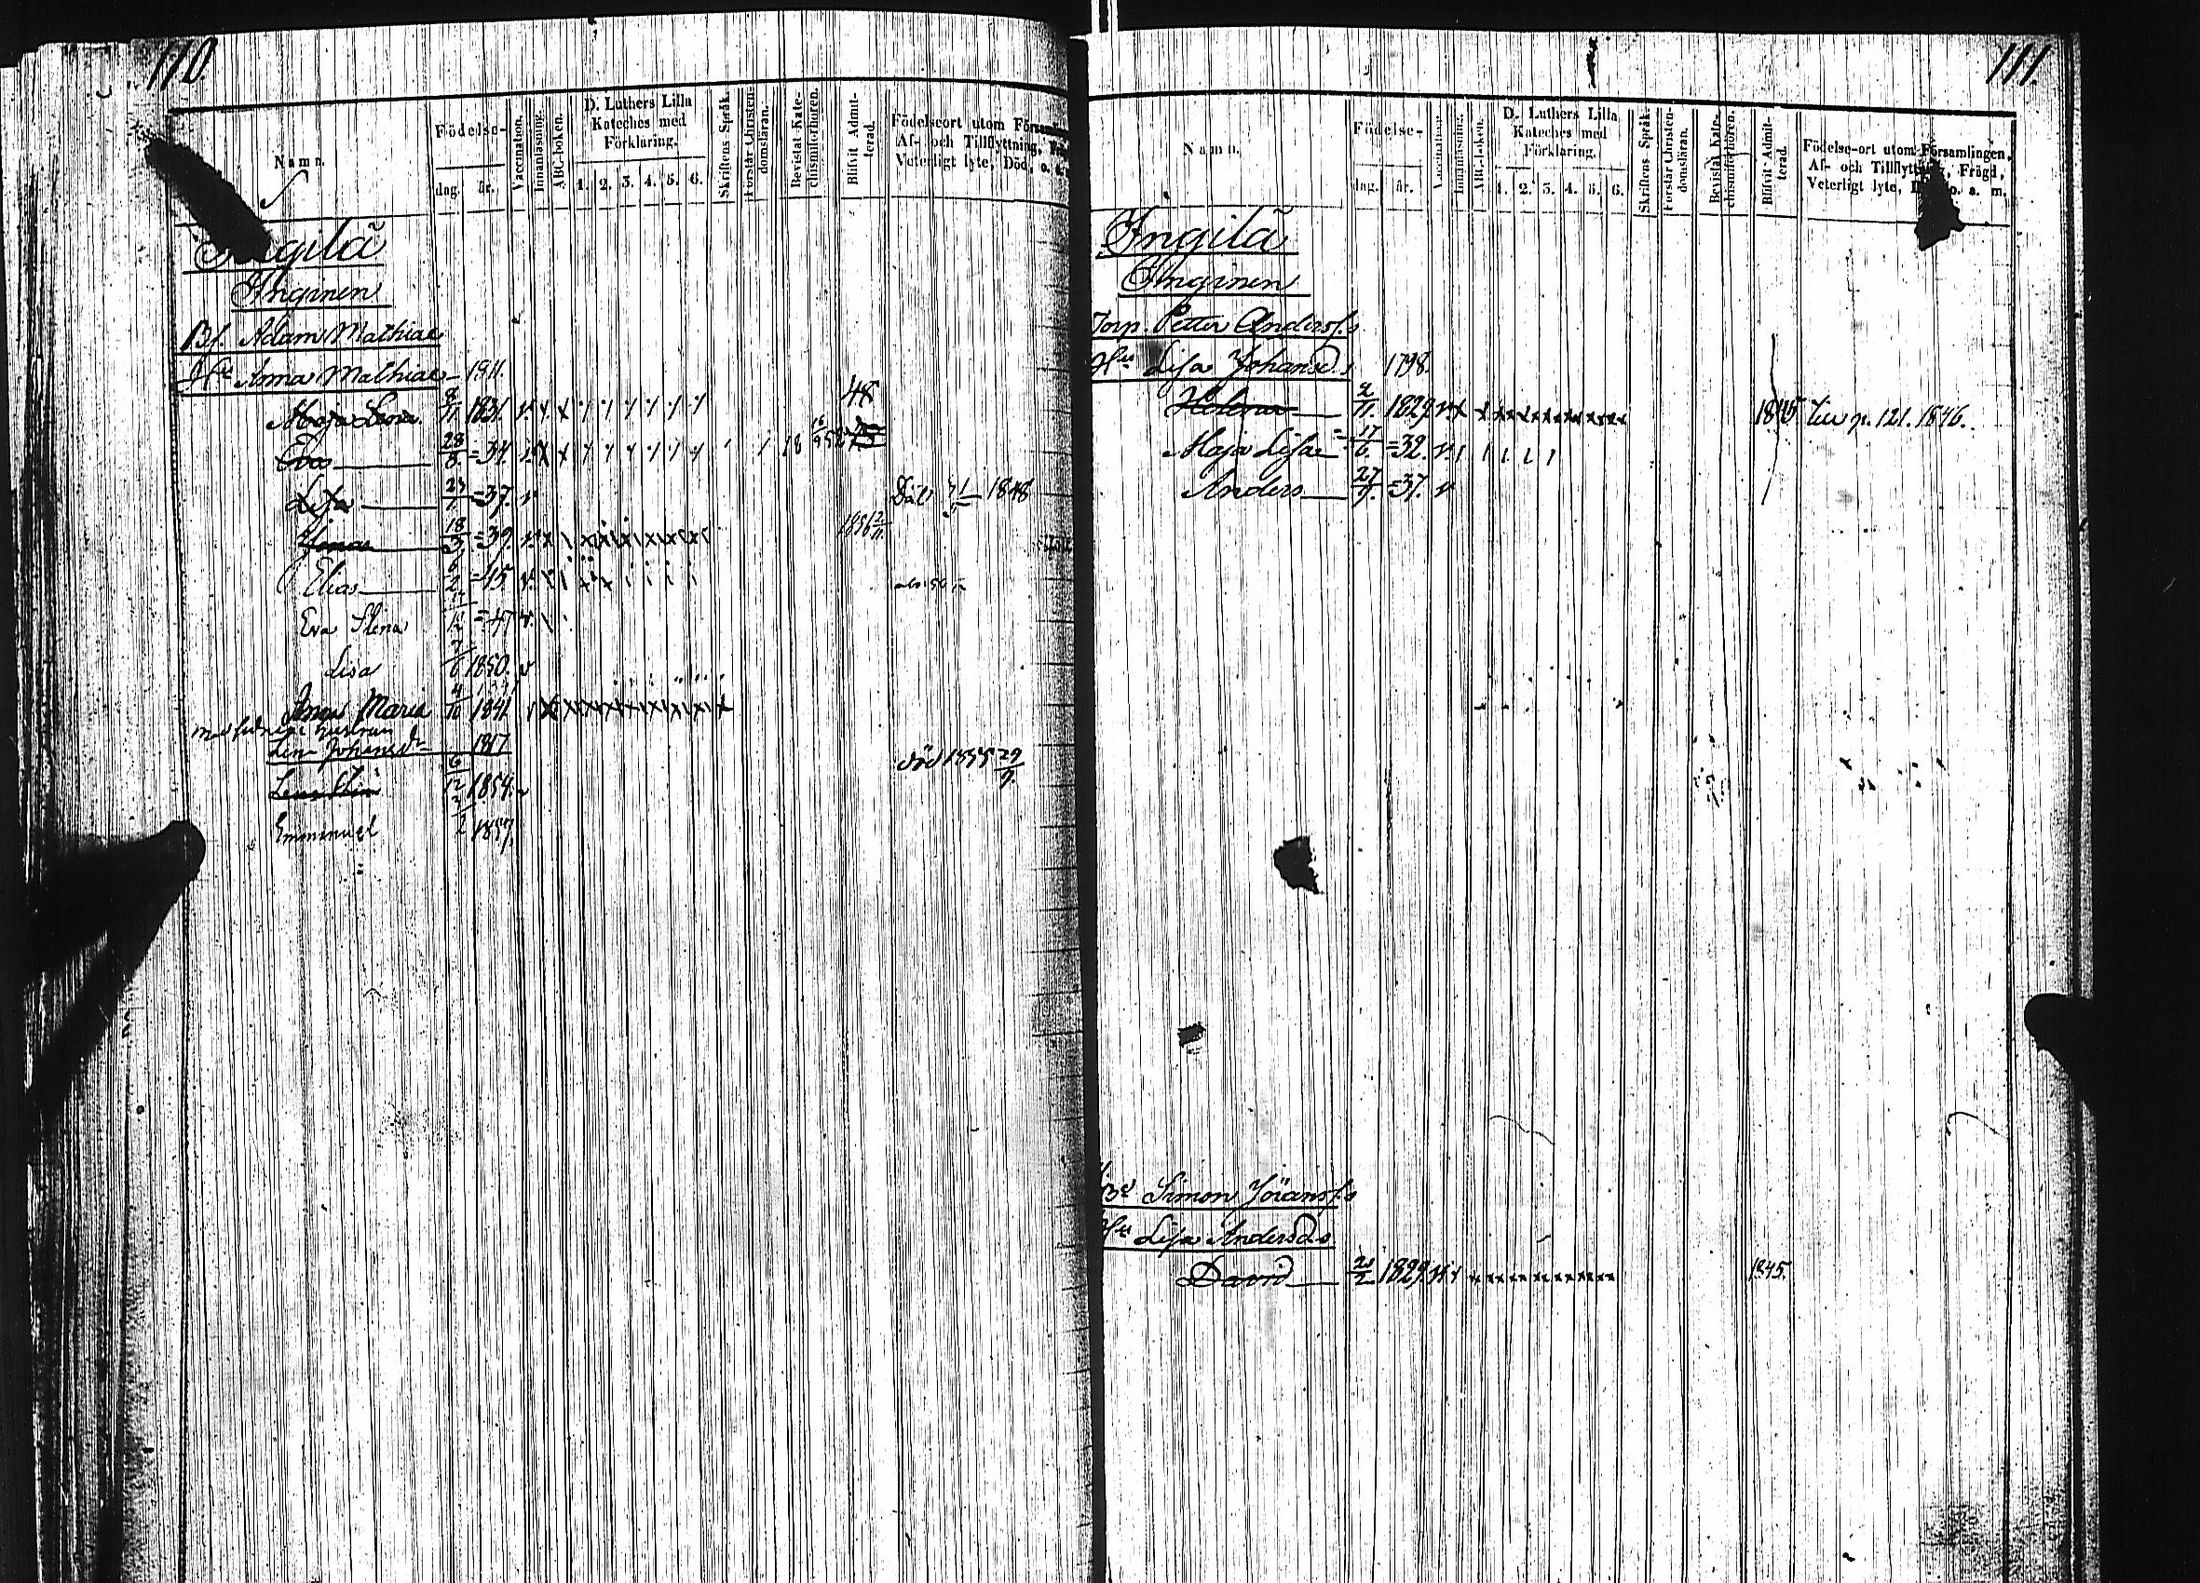 110.
Namn.
Födelse-
dag. år.
Vaccination.
Innanläsning.
ABC-boken.
D. Luthers Lilla
Kateches med
Förklaring.
1. 2. 3. 4. 5. 6.
Skriftens Språk.
Förstår Christen-
domsläran.
Bevistat Kate-
chismiförhören.
Blifvit Admit-
terad.
Födelseort utom
Af- och Tillflyttning,
Veterligt lyte, Död, o. s.
Ingilä
Inginen
Bf. Adam Mathiae
Hu Anna Mathiae 1811.
Maja Lena 8/11 1831. 48
Eva 28/8 =34.
Lisa =37. v Död 1848
Jonas 18/3 =39.
Elias =45
Eva Stena =47
Lisa 1850. v
Anna Maria 4/10 1841.
hustrun
Lena Johansdr 1817
6/12 1854. död 1855 29/9.
Emmanuel 1857.
111.
Namn.
Födelse-
dag. år.
Vaccination.
Innanläsning.
ABC-boken.
D. Luthers Lilla
Kateches med
Förklaring.
1. 2. 3. 4. 5. 6.
Skriftens Språk.
Förstår Christen-
domsläran.
Bevistat Kate-
chismiförhören.
Blifvit Admit-
terad.
Födelse-ort utom Församlingen,
Af- och Tillflyttning, Frägd,
Veterligt lyte, o. s. m.
Ingilä
Inginen
Torp. Petter Anders.s
Hu Lisa Johansd.s 1798.
Helena 2/11. 1829 1845 p. 121. 1846.
Maja Lisa 17/6. =32. v.
Anders 27/9. =37. v
Simon Jöransf.s
Hu Lisa Andersd.s
David 1829 1845.